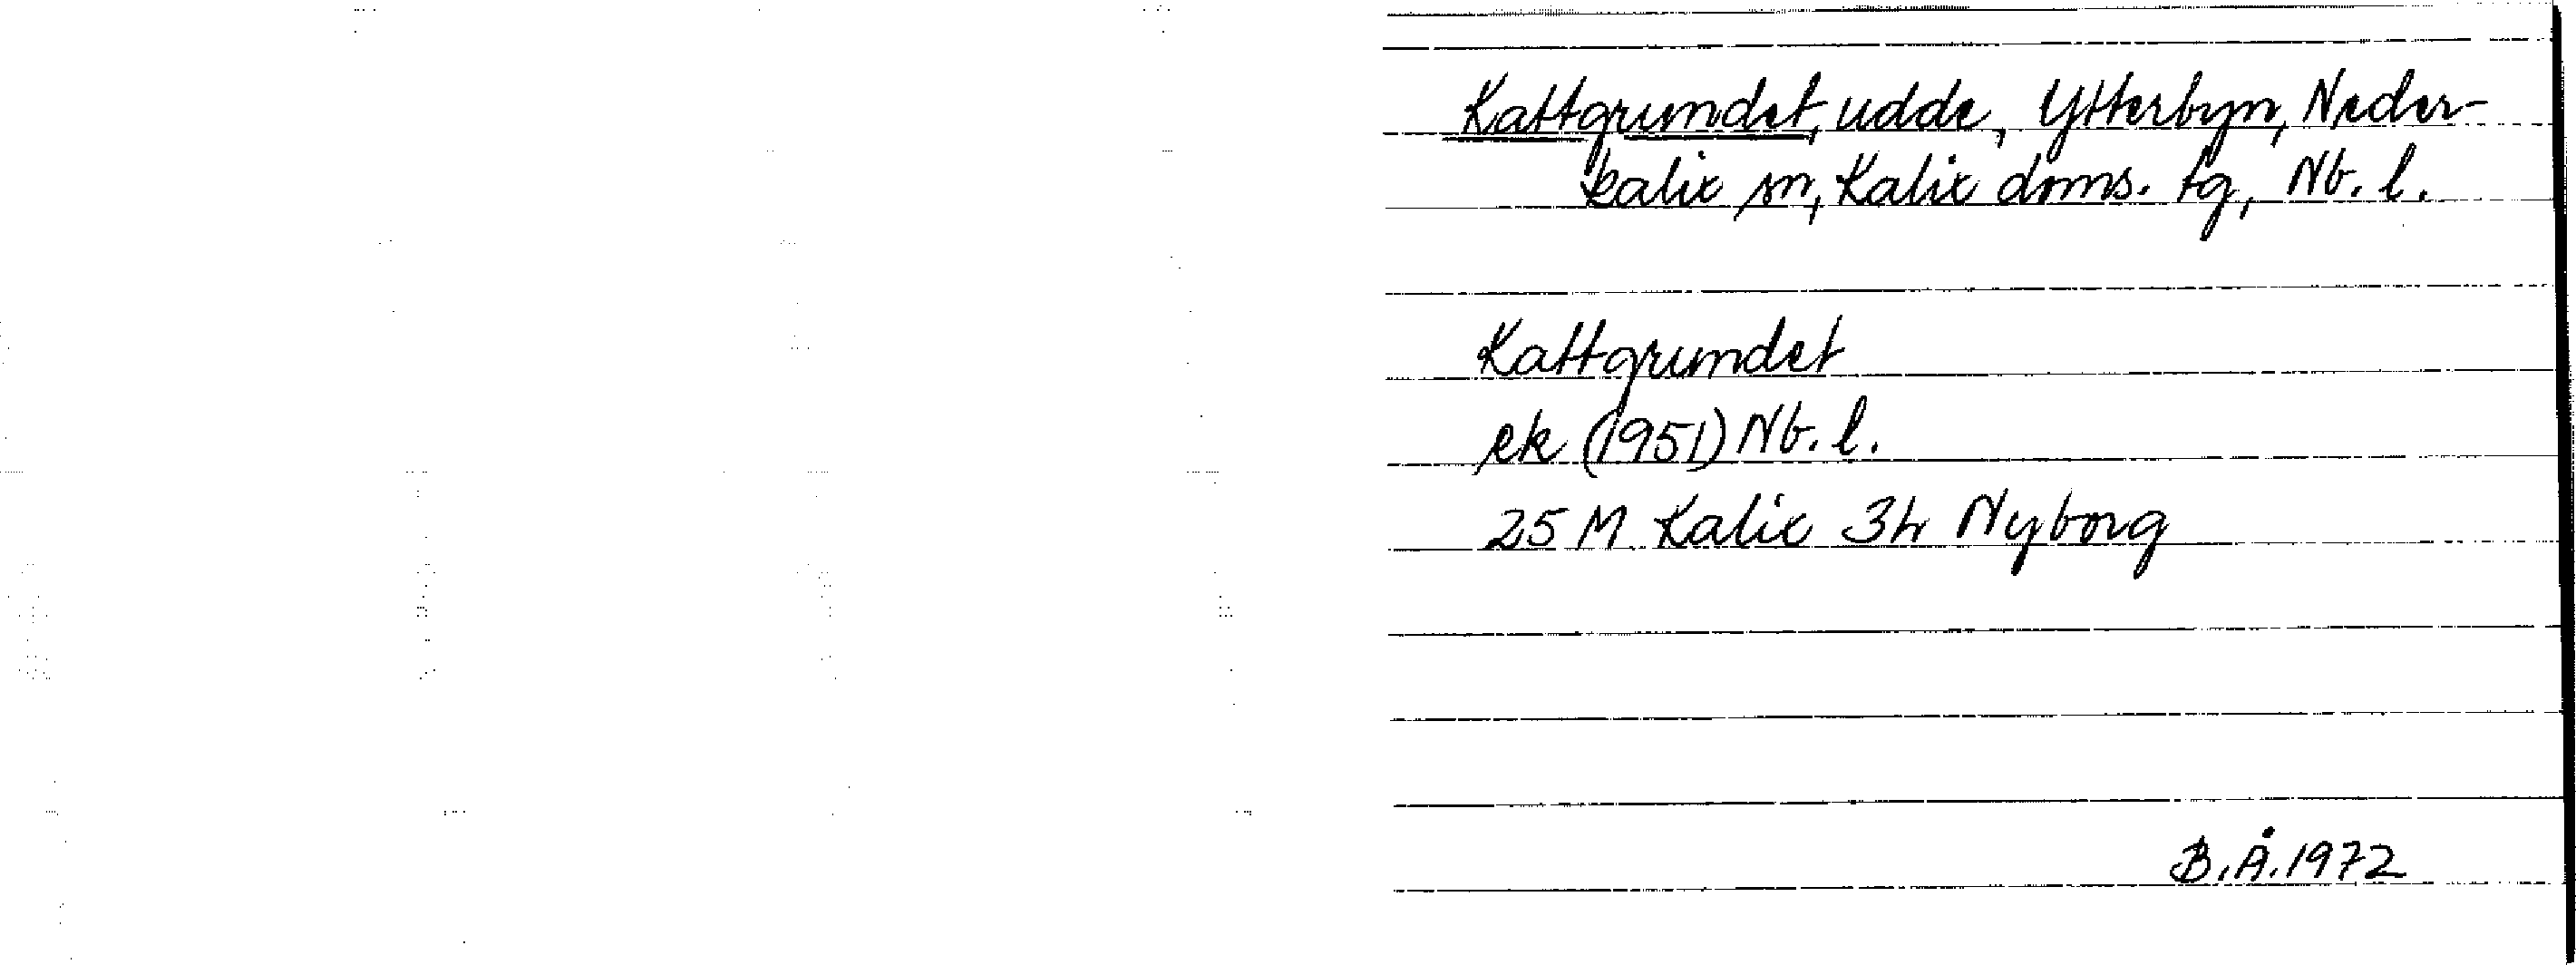 Kattgrundet, udde, Ytterbyn, Neder-
kalix sn, Kalix doms. tg, Nb. l.
Kattgrundet
ek (1951) Nb. l.
25 M Kalix 3h Nyborg
B.Å.1972